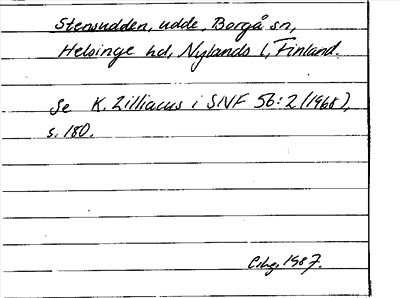 Stensudden, udde, Borgå sn,
Helsinge hd, Nylands l, Finland.
Se K. Zilliacus i SNF 56:2 (1968),
s. 180.
1987.